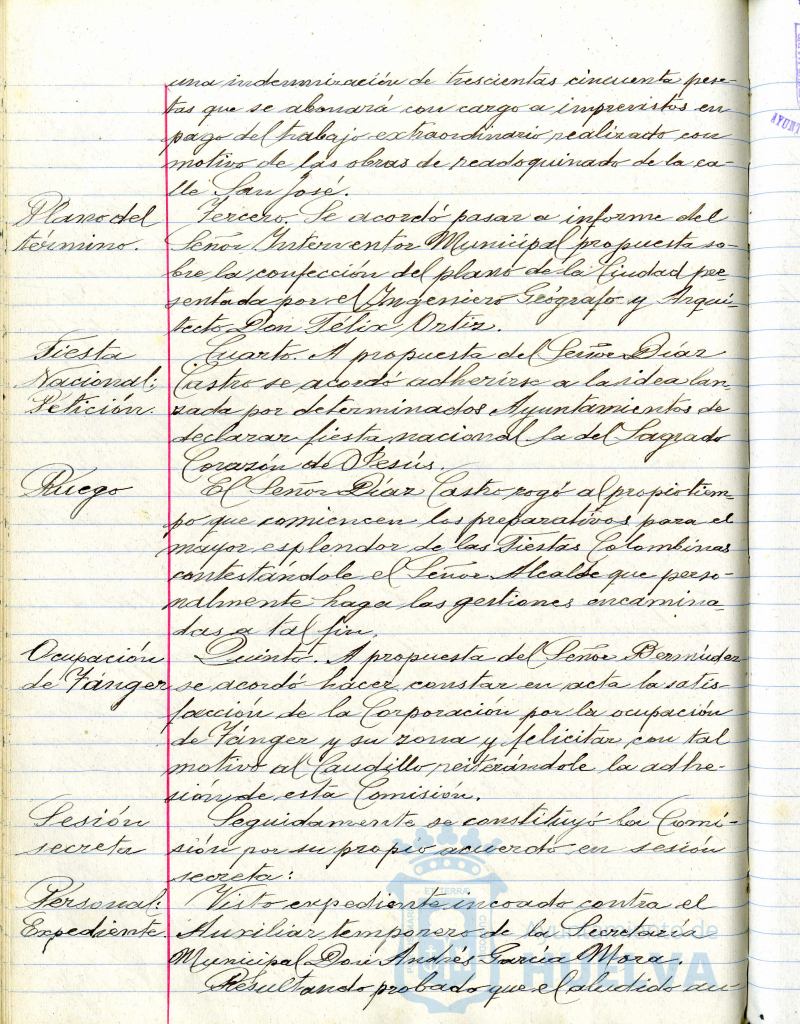 una indemnización de trescientas cincuenta pese-
tas que se abonará con cargo a imprevistos en
pago del trabajo extraordinario realizado con
motivo de las obras de readoquinado de la ca-
lle San José.
Plano del
término.
Tercero. Se acordó pasar a informe del
Señor Interventor Municipal propuesta so-
bre la confección del plano de la Ciudad pre-
sentada por el Ingeniero Geógrafo y Arqui-
tecto Don Félix Ortiz.
Fiesta
Nacional:
Petición.
Cuarto. A propuesta del Señor Díaz
Castro se acordó adherirse a la idea lan-
zada por determinados Ayuntamientos de
declarar fiesta nacional la del Sagrado
Corazón de Jesús.
Ruego
El Señor Díaz Castro rogó al propio tiem-
po que comiencen los preparativos para el
mayor esplendor de las Fiestas Colombinas
contestándole el Señor Alcalde que perso-
nalmente haga las gestiones encamina-
das a tal fin.
Ocupación
de Tánger
Quinto. A propuesta del Señor Bermúdez
se acordó hacer constar en acta la satis-
facción de la Corporación por la ocupación
de Tánger y su zona y felicitar con tal
motivo al Caudillo reiterándole la adhe-
sión de esta Comisión.
Sesión
secreta
Seguidamente se constituyó la Comi-
sión por su propio acuerdo en sesión
secreta:
Personal:
Expediente.
Visto expediente incoado contra el
Auxiliar temporero de la Secretaría
Municipal Don Andrés García Mora.
Resultando probado que el aludido au-
Ayuntamiento de
HUELVA
AYUNT